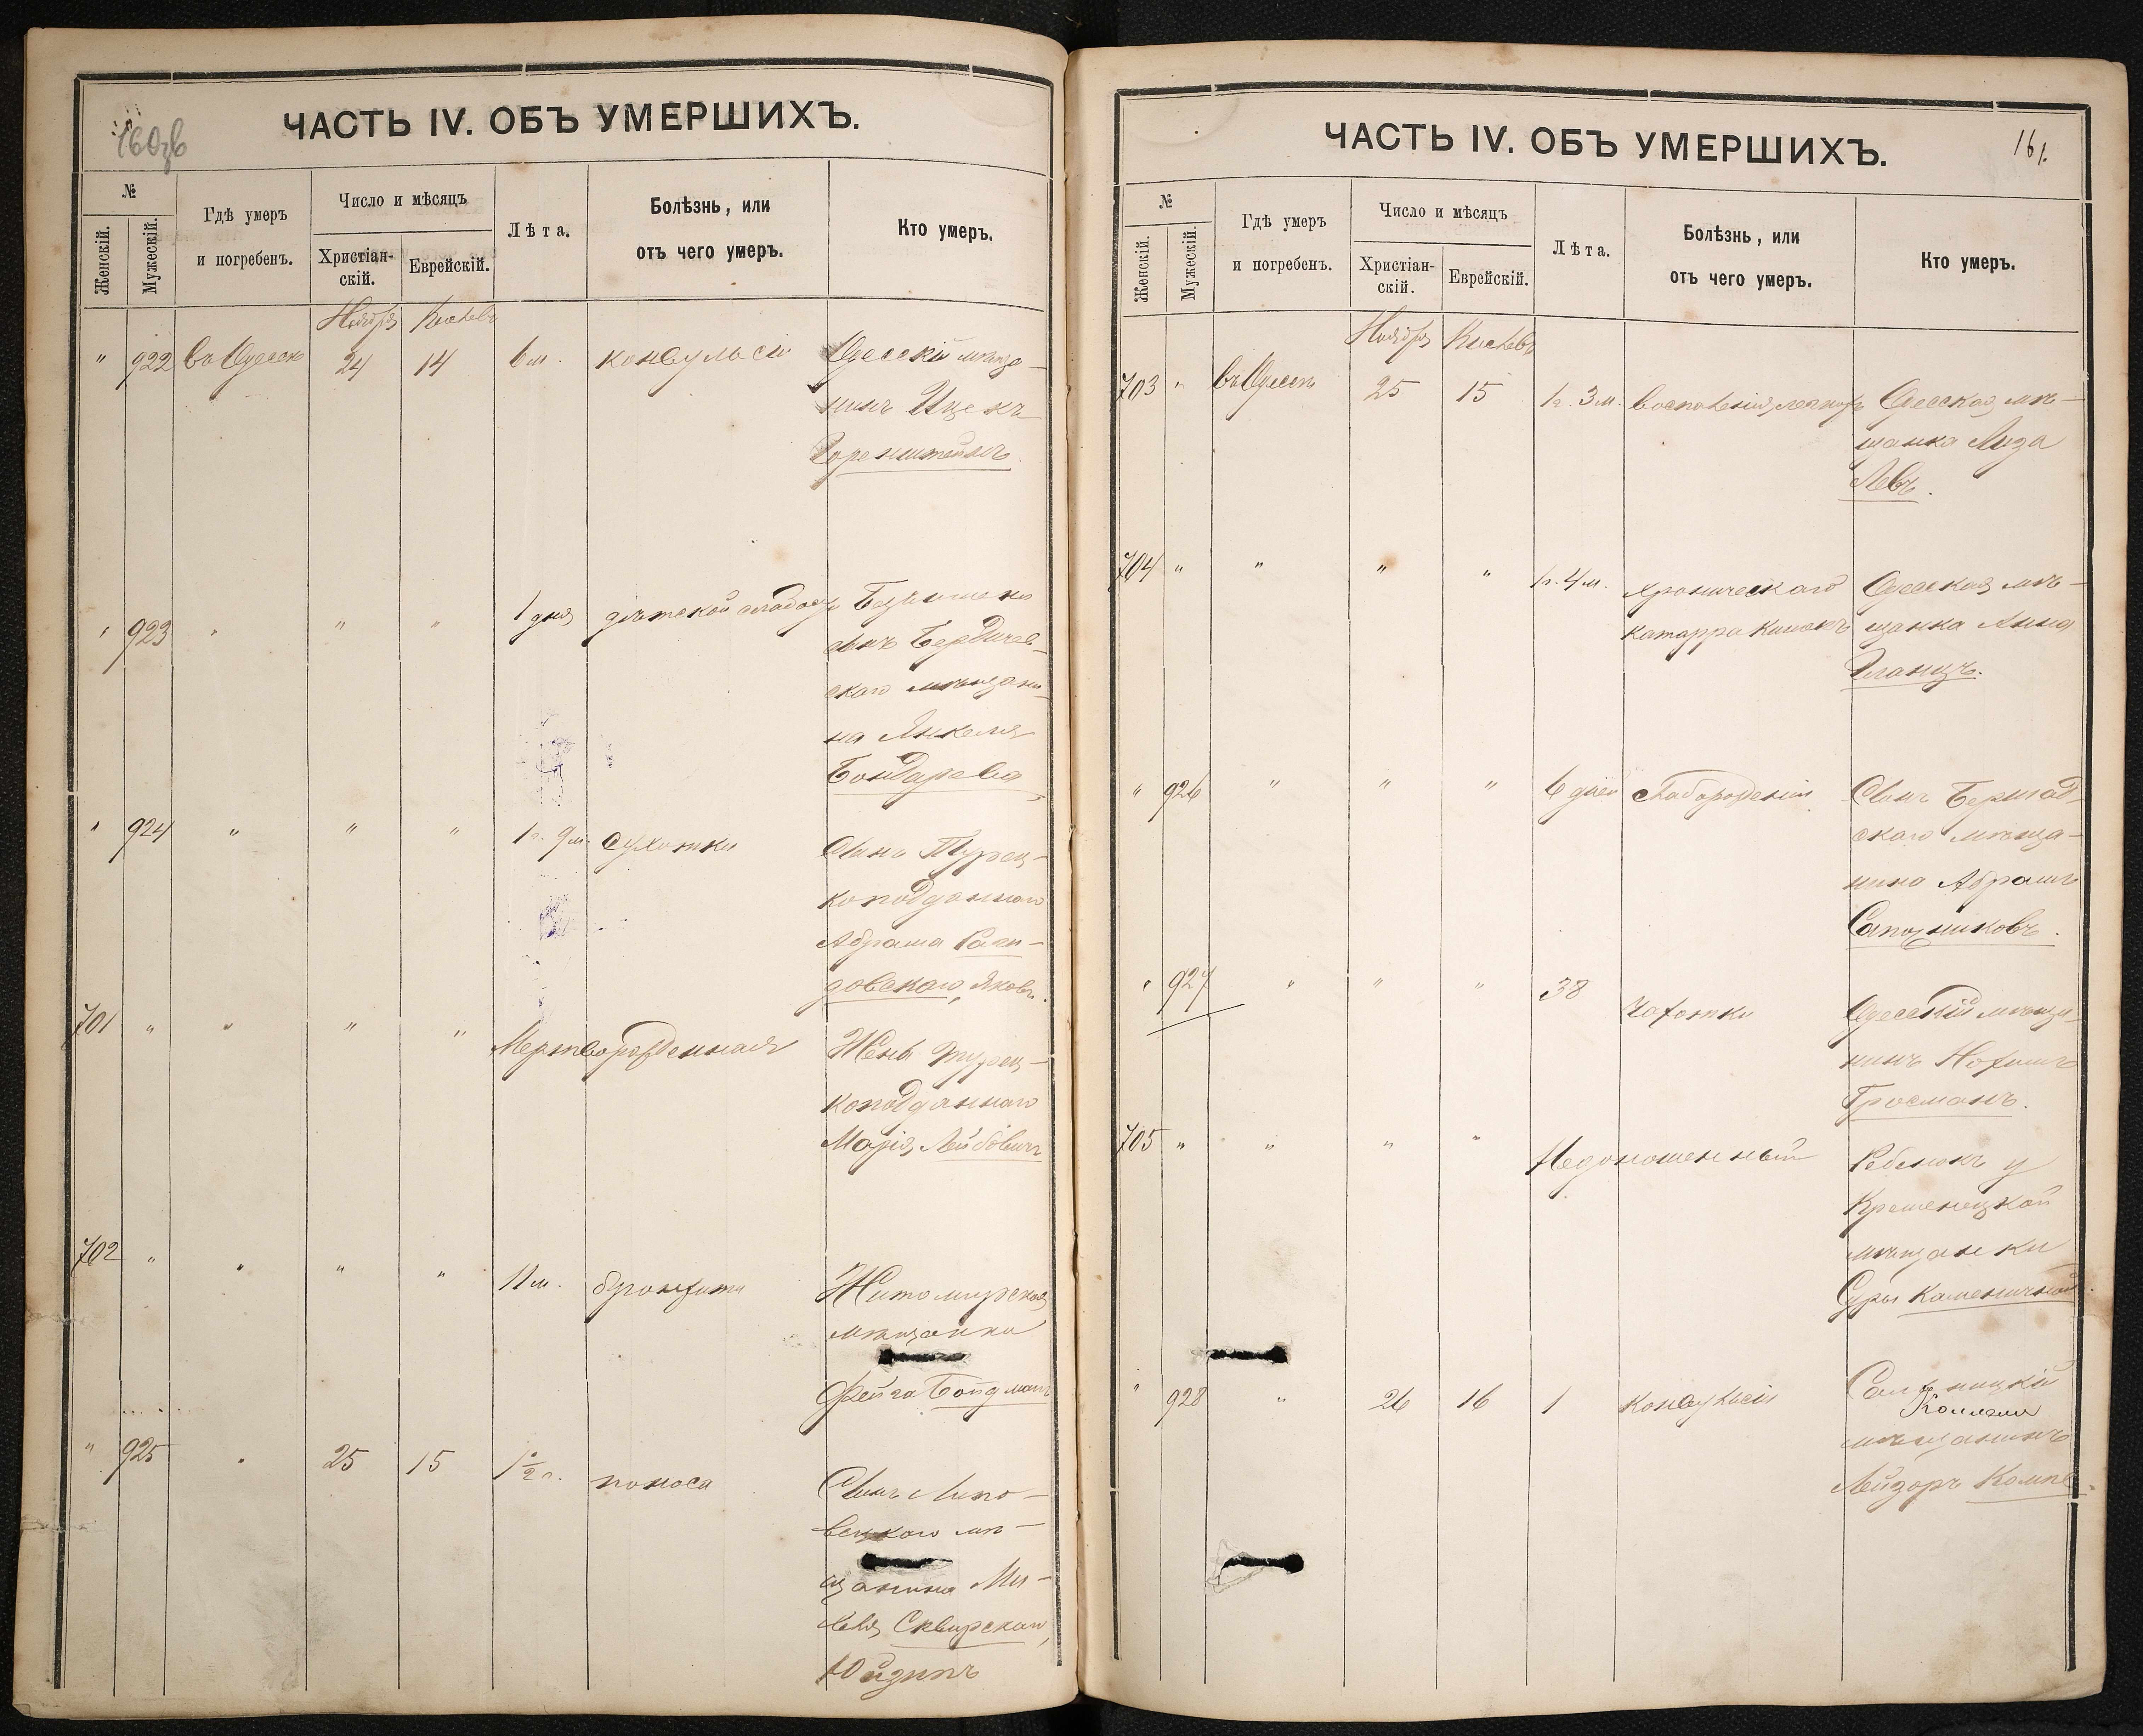 160об
ЧАСТЬ IV. ОБЪ УМЕРШИХЪ.
№
Женскій.
Мужескій.
Гдѣ умеръ
и погребенъ.
Число и мѣсяцъ
Христіан-
скій.
Еврейскій.
Лѣта.
Болѣзнь, или
отъ чего умеръ.
Кто умеръ.
Ноября Кислевъ
" 922 въ Одессѣ 24 14 6 м. конвульсіи Одесскій мѣща-
нинъ Ицекъ
Горенштейнъ.
" 923 " " " 1 дня дѣтской слабости Безъимени
сынъ Бердичев-
скаго мѣщани-
на Янкеля
Бондарева
" 924 " " " 1 г. 9 м. сухотки Сынъ Турец-
коподданнаго
Абрама
довскаго, Яковъ.
701 " " " " Мертворожденная Жена Турец-
коподданнаго
Марія Лейбовичъ
702 " " " " 11 м. бронхита Житомирская
мѣщанка
Фейга Бойдманъ
" 925 " 25 15 1½ г. поноса Сынъ Липо-
вецкаго мѣ-
щанина Ми-
хеля Сквирскаго,
161.
ЧАСТЬ IV. ОБЪ УМЕРШИХЪ.
№
Женскій.
Мужескій.
Гдѣ умеръ
и погребенъ.
Число и мѣсяцъ
Христіан-
скій.
Еврейскій.
Лѣта.
Болѣзнь, или
отъ чего умеръ.
Кто умеръ.
Ноября Кислевъ
703 " въ Одессѣ 25 15 1 г. 3 м. воспаленія легкихъ Одесская мѣ-
щанка Лиза
Левъ.
704 " " " " 1 г. 4 м. хроническаго Одесская мѣ-
катарра кишекъ щанка Анна
Гланцъ.
" 926 " " " 6 дней слаборожденія Сынъ Бершад-
скаго мѣща-
нина Абрамъ
Сапожниковъ.
" 927 " " " 38 чахотки Одесскій мѣща-
нинъ Нохимъ
Гросманъ.
705 " " " " Недоношенный Ребенокъ у
Кременецкой
мѣщанки
Суры Каменичной
" 928 " 26 16 1 конвульсіи
мѣщанинъ
Лейзоръ